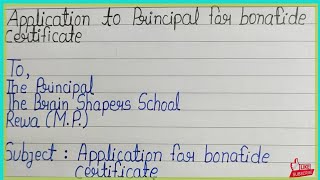 Application to Principal for bonafide
certificate
To,
The Principal
The Brain Shapers School
Rewa (M.P.)
Subject : Application for bonafide
certificate